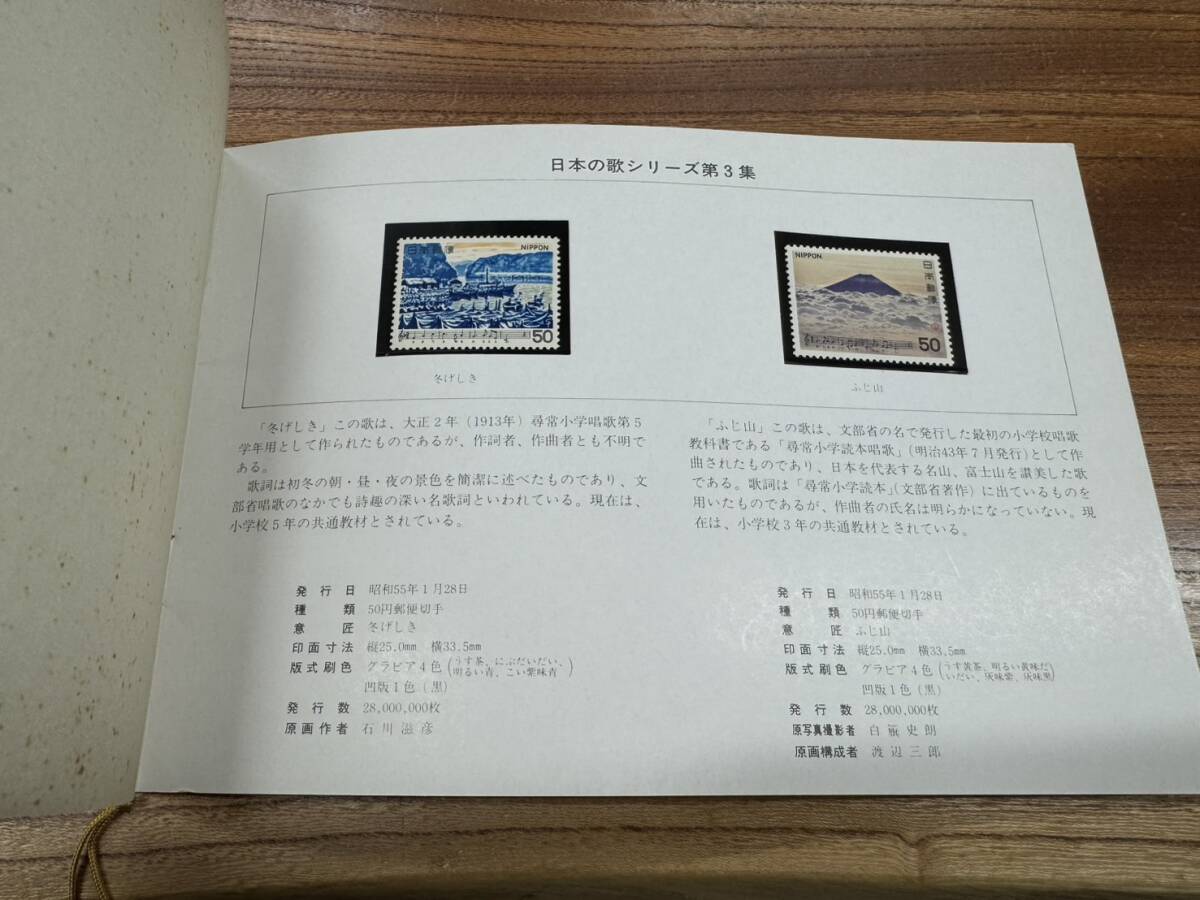 日本の歌シリーズ第3集
日本郵便
NIPPON
50
冬げしき
NIPPON
日本郵便
50
ふじ山
「冬げしき」この歌は、大正2年(1913年)尋常小学唱歌第5
学年用として作られたものであるが、作詞者、作曲者とも不明で
ある。
歌詞は初冬の朝・昼・夜の景色を簡潔に述べたものであり、文
部省唱歌のなかでも詩趣の深い名歌詞といわれている。現在は、
小学校5年の共通教材とされている。
「ふじ山」この歌は、文部省の名で発行した最初の小学校唱歌
教科書である「尋常小学読本唱歌」(明治43年7月発行)として作
曲されたものであり、日本を代表する名山、富士山を讃美した歌
である。歌詞は「尋常小学読本」(文部省著作)に出ているものを
用いたものであるが、作曲者の氏名は明らかになっていない。現
在は、小学校3年の共通教材とされている。
発行日 昭和55年1月28日
種類 50円郵便切手
意匠 冬げしき
印面寸法 縦25.0mm 横33.5mm
版式刷色 グラビア4色(うす茶、にぶだいだい、
明るい青、こい紫味青)
凹版1色(黒)
発行数 28,000,000枚
原画作者 石川滋彦
発行日 昭和55年1月28日
種類 50円郵便切手
意匠 ふじ山
印面寸法 縦25.0mm 横33.5mm
版式刷色 グラビア4色(うす黄茶、明るい黄味だ
いだい、灰味紫、灰味黒)
凹版1色(黒)
発行数 28,000,000枚
原写真撮影者 白籏史朗
原画構成者 渡辺三郎